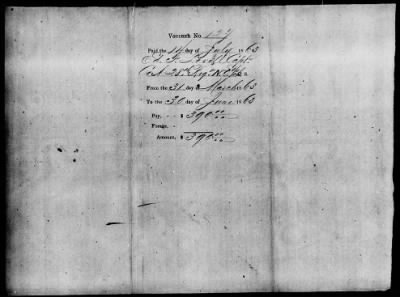 Voucher No. 127
Paid the 14 day of July 1863
Capt
Co. 28th Reg. N.C.
From the 31 day of March 63
To the 30 day of June 1863
Pay, - - $ 390.00
Forage, -
Amount, $ 390.00